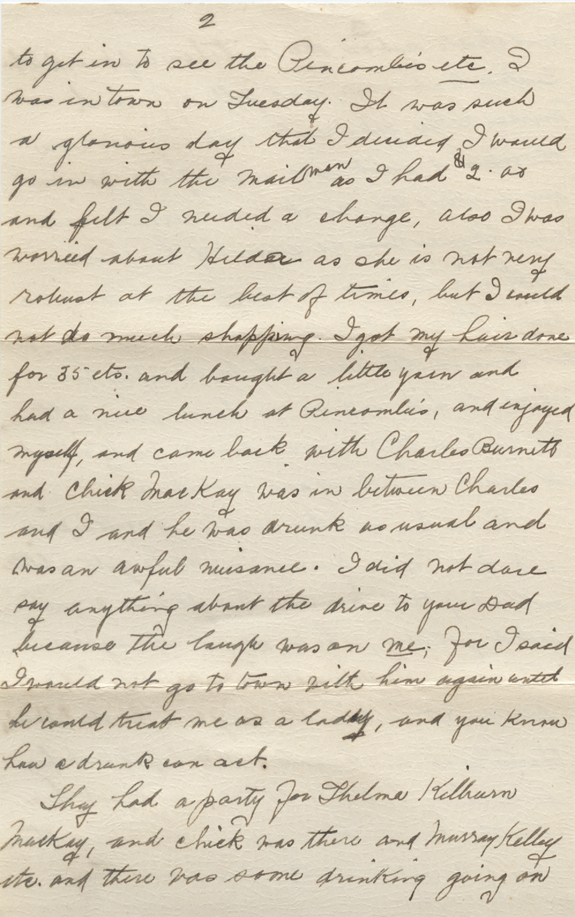 2
to get in to see the Pincombe's etc. I
was in town on Tuesday. It was such
a glorious day that I decided I would
go in with the mail man as I had $2.00
and felt I needed a change, also I was
worried about Hilda as she is not very
robust at the best of times, but I could
not do much shopping. I got my hair done
for 35 cts. and bought a little yarn and
had a nice lunch at Pincombe's, and enjoyed
myself, and came back with Charles Burnett
and Chick MacKay was in between Charles
and I and he was drunk as usual and
was an awful nuisance. I did not dare
say anything about the drive to your Dad
because the laugh was on me, for I said
I would not go to town with him again until
he could treat me as a lady, and you know
how a drunk can act.
They had a party for Thelma Kilburn
MacKay, and Chick was there and Murray Kelley
etc. and there was some drinking going on